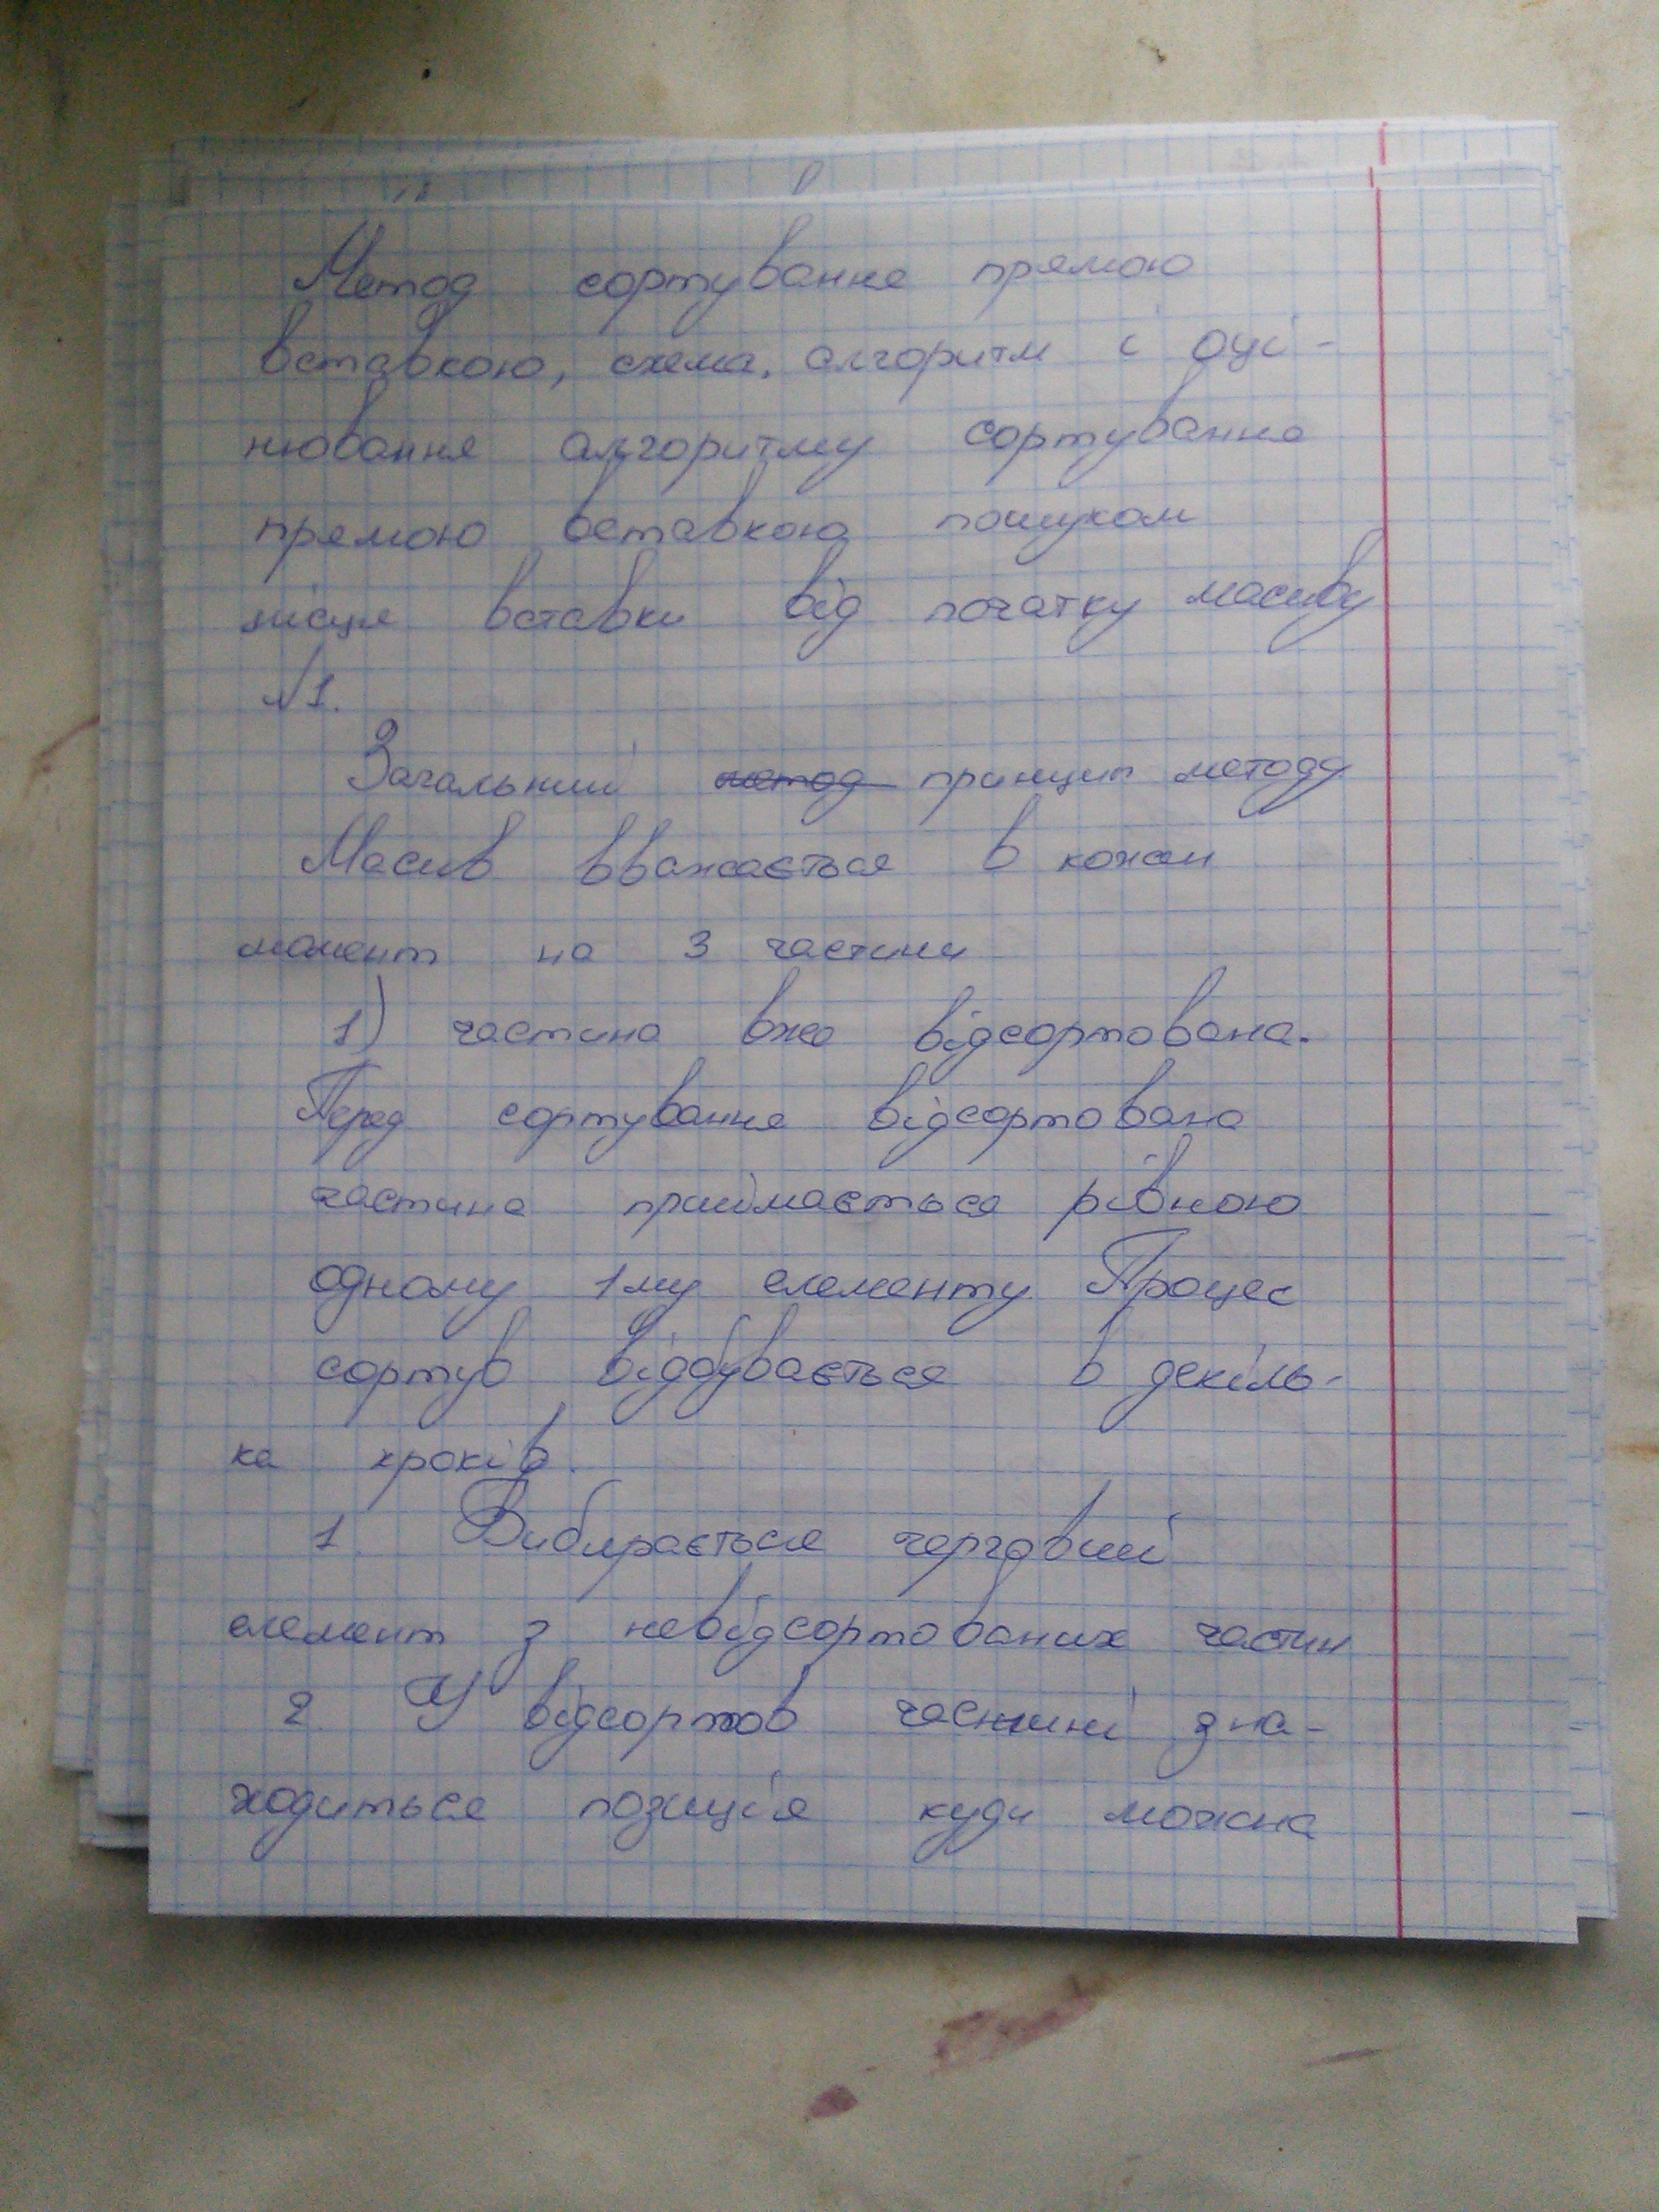 Метод сортування прямою
вставкою, схема, алгоритм і оці-
нювання алгоритму сортування
прямою вставкою пошуком
місця вставки від початку масиву
№1.
Загальний метод принцип методу
Масив вважається в кожен
момент на 3 частини
1) частина вже відсортована.
Перед сортування відсортована
частина приймається рівною
одному 1му елементу Процес
сортув відбувається в декіль-
ка кроків.
1. Вибирається черговий
елемент з невідсортованих частин
2. У відсортов частині зна-
ходиться позиція куди можна